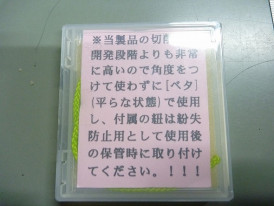 ※当製品の切削
開発段階よりも非常
に高いので角度をつ
けて使わずに[ベタ]
(平らな状態)で使用
し、付属の紐は紛失
防止用として使用後
の保管時に取り付け
てください。!!!